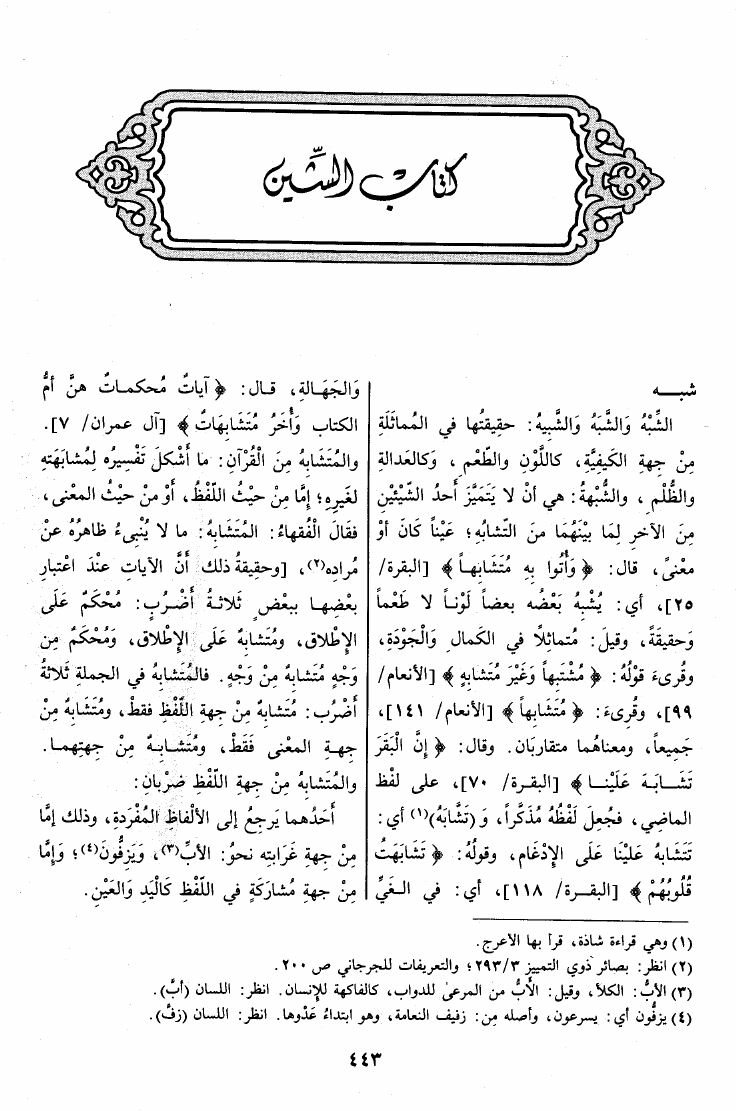 كتاب الشين
شبـــه
الشِّبْهُ وَالشَّبَهُ وَالشَّبِيهُ: حقيقتُها في المُماثَلَةِ
مِنْ جهةِ الكَيفِيَّةِ، كاللَّوْنِ والطَّعْمِ، وَكالعَدالةِ
والظُّلْمِ، والشُّبْهَةُ: هي أنْ لا يَتَمَيَّزَ أحدُ الشَّيْئَيْنِ
مِنَ الآخرِ لِمَا بَيْنَهُما منَ التَّشابُهِ؛ عَيْناً كَانَ أوْ
معنىً، قال: ﴿ وَأُتُوا بِهِ مُتَشَابِهاً ﴾ [البقرة/
٢٥]، أي: يُشْبِهُ بَعْضُه بعضاً لَوْناً لا طَعْماً
وَحقيقَةً، وقيلَ: مُتماثِلاً في الكَمالِ وَالْجَوْدَةِ،
وقُرىءَ قَوْلُهُ: ﴿ مُشْتَبِهاً وَغَيْرَ مُتَشَابِهٍ ﴾ [الأنعام/
٩٩]، وقُرِىءَ: ﴿ مُتَشَابِهاً ﴾ [الأنعام/ ١٤١]،
جَميعاً، ومعناهُما متقاربَان. وقال: ﴿ إِنَّ الْبَقَرَ
تَشَـــابَـهَ عَلَيْنَــا ﴾ [البقـرة/ ٧٠]، على لَفْظِ
الماضِي، فَجُعِلَ لَفْظُهُ مُذَكَّراً، وَ(تَشَّابَهُ)(١) أي:
تَتَشَابَهُ عَلَيْنَا عَلَى الإِدْغَامِ، وقولُهُ: ﴿ تَشَابَهَتْ
قُلُوبُهُمْ ﴾ [البقــرة/ ١١٨]، أي: في الـغَيِّ
وَالجَهَـالةِ، قـال: ﴿ آيَاتٌ مُحكمـاتٌ هنَّ أمُّ
الكتاب وَأُخَرُ مُتَشَابِهَاتٌ ﴾ [آل عمران/ ٧].
والمُتَشَابِهُ مِنَ الْقُرْآنِ: ما أَشْكلَ تَفْسِيرُه لِمُشابَهَتِهِ
لغَيرِهِ؛ إمَّا مِنْ حيْثُ اللَّفْظُ، أوْ منْ حيْثُ المعْنى،
فقالَ الْفُقهاءُ: المُتَشَابِهُ: ما لا يُنْبِىءُ ظاهرُهُ عنْ
مُرادهِ(٢)، [وحقيقةُ ذلك أنَّ الآياتِ عنْدَ اعتبارِ
بعْضِهـا ببعْضٍ ثَلاثـةُ أضْـرُبٍ: مُحْكَمٌ عَلَى
الإِطْلاقِ، ومتَشابهٌ عَلَى الإِطْلاقِ، وَمُحْكَمٌ مِن
وَجْهٍ مُتَشابهٌ مِنْ وَجْهٍ. فالمُتَشابهُ في الجملةِ ثَلاثةُ
أضْرُب: مُتَشابهٌ مِنْ جهةِ اللَّفْظِ فقطْ، ومُتَشابهٌ مِنْ
جهـةِ المعْنى فَقَطْ، ومُتَشـابـهٌ مِنْ جهتِهمـا.
والمُتَشابهُ مِنْ جهةِ اللَّفْظِ ضَرْبان:
أحَدُهما يَرجعُ إلى الألْفاظِ المُفْردَةِ، وذلك إمَّا
مِنْ جهةِ غَرابتِه نحوُ: الأبِّ(٣)، وَيَزِفُّونَ(٤)؛ وَإمَّا
مِنْ جهةِ مُشاركَةٍ في اللَّفْظِ كَالْيَدِ وَالعَيْنِ.
(١) وهي قراءة شاذة، قرأ بها الأعرج.
(٢) انظر: بصائر ذوي التمييز ٢٩٣/٣؛ والتعريفات للجرجاني ص ٢٠٠.
(٣) الأبُّ: الكلأ، وقيل: الأبُّ من المرعىٰ للدواب، كالفاكهة للإنسان. انظر: اللسان (أبَّ).
(٤) يزفُّون أي: يسرعون، وأصله مِن: زفيف النعامة، وهو ابتداءُ عَدْوها. انظر: اللسان (زفَّ).
٤٤٣